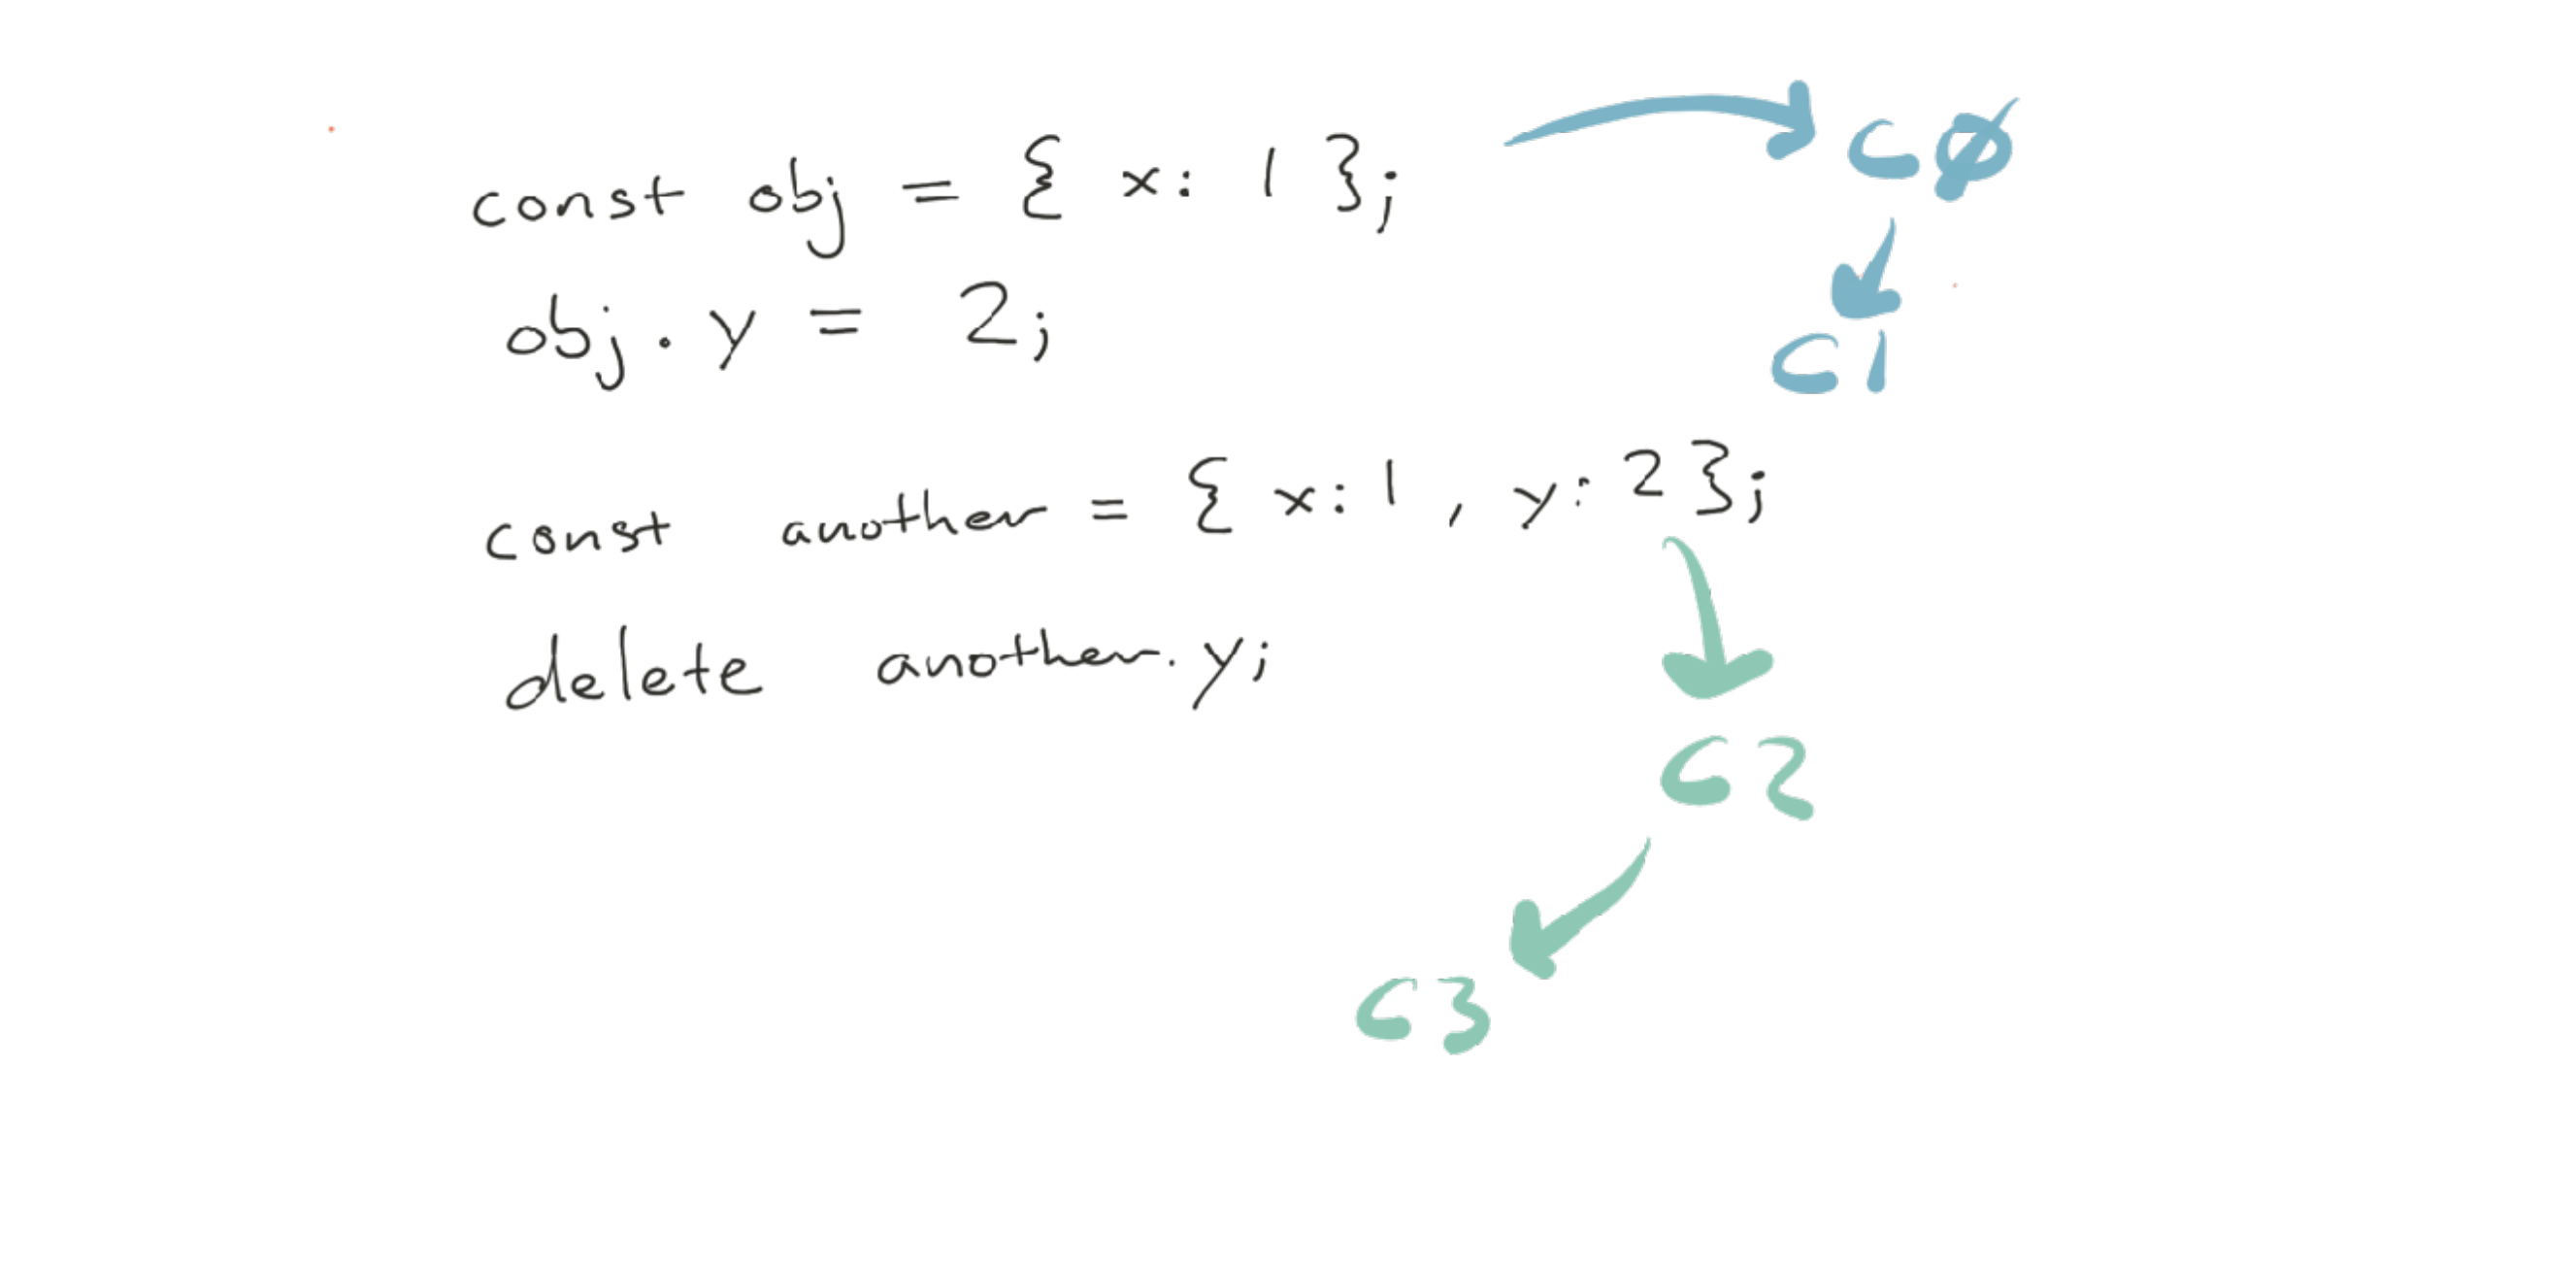 const obj = { x: 1 }; C0
obj.y = 2; C1
const another = { x:1, y:2};
delete another.y;
C2
C3